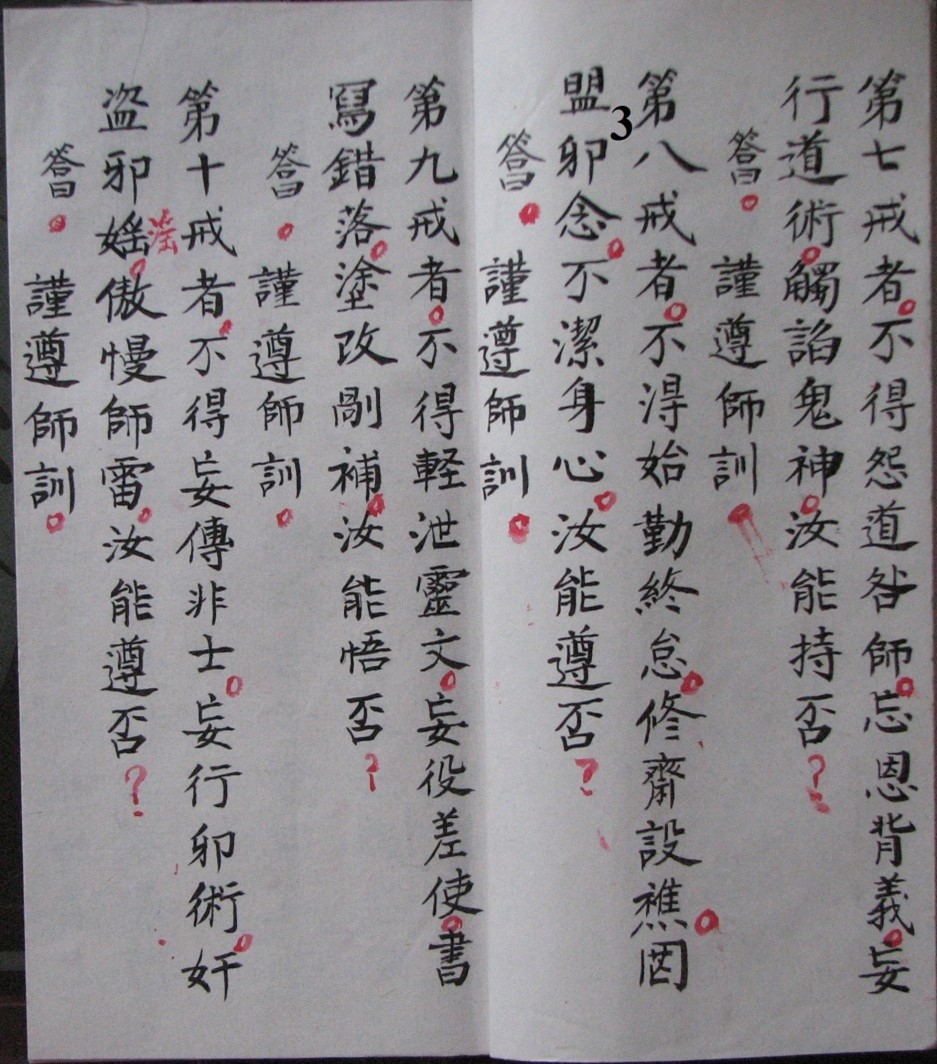 第七戒者。不得怨道咎師。忘恩背義。妄
行道術。觸諂鬼神。汝能持否？
答曰。 謹遵師訓。
第八戒者。不淂始勤終怠。修齋設襍。因
盟邪念。不潔身心。汝能遵否？
3
答曰。 謹遵師訓。
第九戒者。不得軽泄靈文。妄役差使。書
寫錯落。塗改剮補。汝能悟否？
答曰。 謹遵師訓。
第十戒者。不得妄傳非士。妄行邪術。奸
盗邪婬。傲慢師雷。汝能遵否？
淫
答曰。 謹遵師訓。